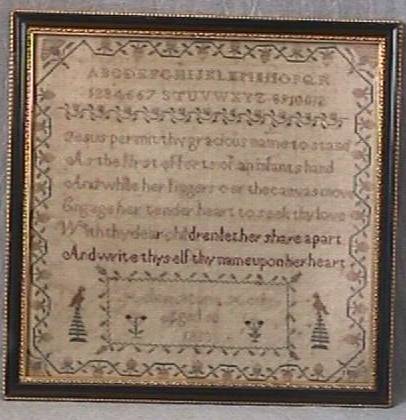 ABCDEFGHIJKLMNOPQR
1234567 STUVWXYZ 89101112
Jesus permit thy gracious name to stand
As the first efforts of an infants hand
And while her fingers o er the canvas move
Engage her tender heart to seek thy love
With thy dear children let her share a part
And write thy self thy name upon her heart
aged